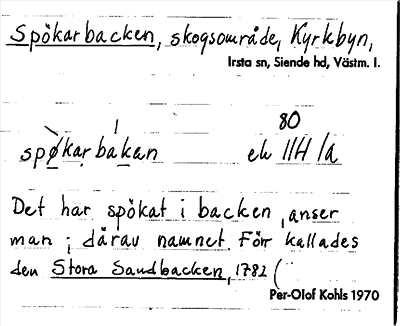 Spökarbacken, skogsområde, Kyrkbyn,
Irsta sn, Siende hd, Västm. l.
80
spøkar bakan ek 11H 1a
Det har spökat i backen, anser
man, därav namnet. Förr kallades
den Stora Sandbacken, 1782 (
Per-Olof Kohls 1970